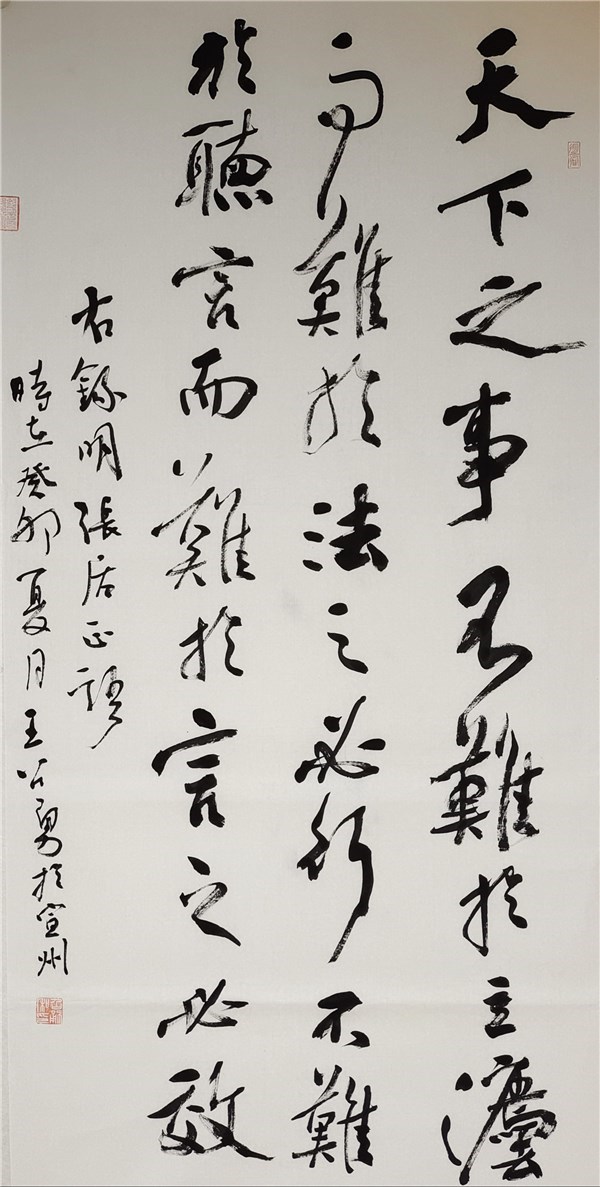 天下之事不難於立灋
而難於法之必行不難
於聽言而難於言之必效
右錄明張居正語
時在癸卯夏月王公勇於宣州